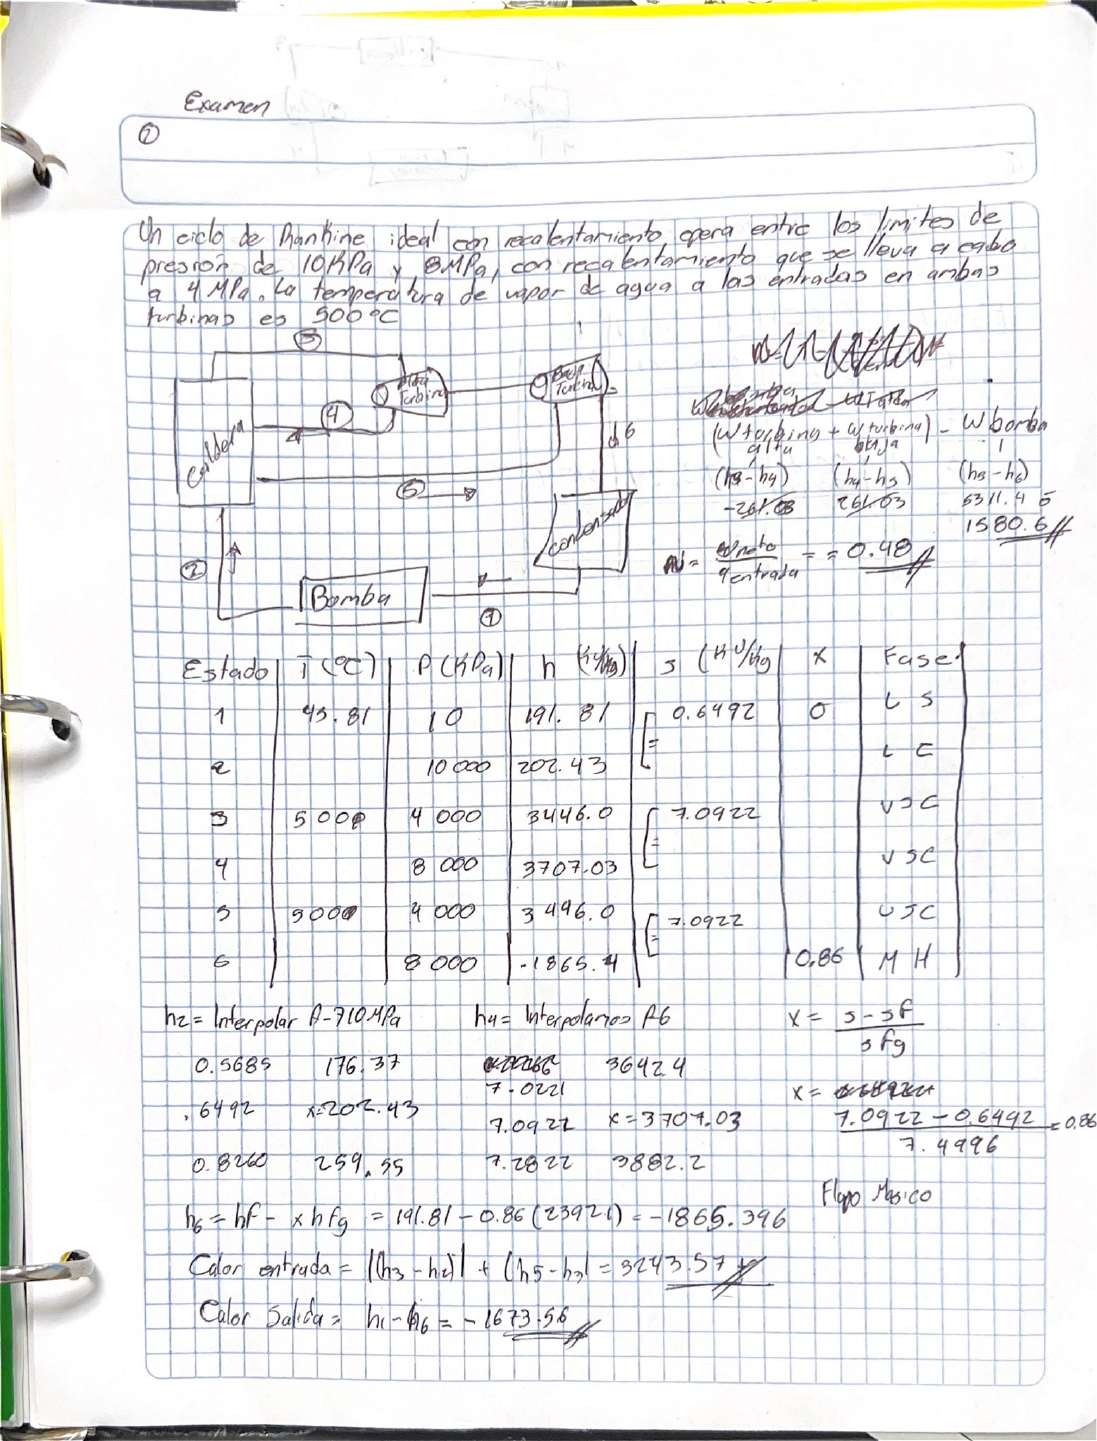 Examen
①
Un ciclo de Rankine ideal con recalentamiento opera entre los límites de
presión de 10KPa y 8MPa, con recalentamiento que se lleva a cabo
a 4 MPa. La temperatura de vapor de agua a las entradas en ambas
turbinas es 500°C
③
Alta Turbina
Baja Turbina
④
Caldera
6
⑤
Condensador
②
Bomba
①
(W turbina alta + W turbina baja) - W bomba
(h3-h4) (h4-h5) (h5-h6)
-261.03 261.03 5311.4
1580.6
N = W neto / q entrada = = 0.48
Estado T (°C) P (KPa) h (KJ/Kg) s (KJ/Kg x Fase
1 45.81 10 191.81 0.6492 0 L S
2 10 000 202.43 = L C
3 500 4 000 3446.0 7.0922 V S C
4 8 000 3707.03 = V S C
5 500 4 000 3446.0 7.0922 V S C
6 8 000 -1865.4 = 0.86 M H
h2 = Interpolar P-710MPa
0.5685 176.37
.6492 x=202.43
0.8260 259.55
h4 = Interpolamos P6
3642.4
7.0221
7.0922 x=3707.03
7.2822 3882.2
x = s-sf / sfg
x =
7.0922 - 0.6492 / 7.4996 = 0.86
Flujo Masico
h6 = hf - xhfg = 191.81 - 0.86(2392.1) = -1865.396
Calor entrada = |(h3-h2)| + (h5-h3| = 3243.57
Calor Salida = h1-h6 = -1673.56